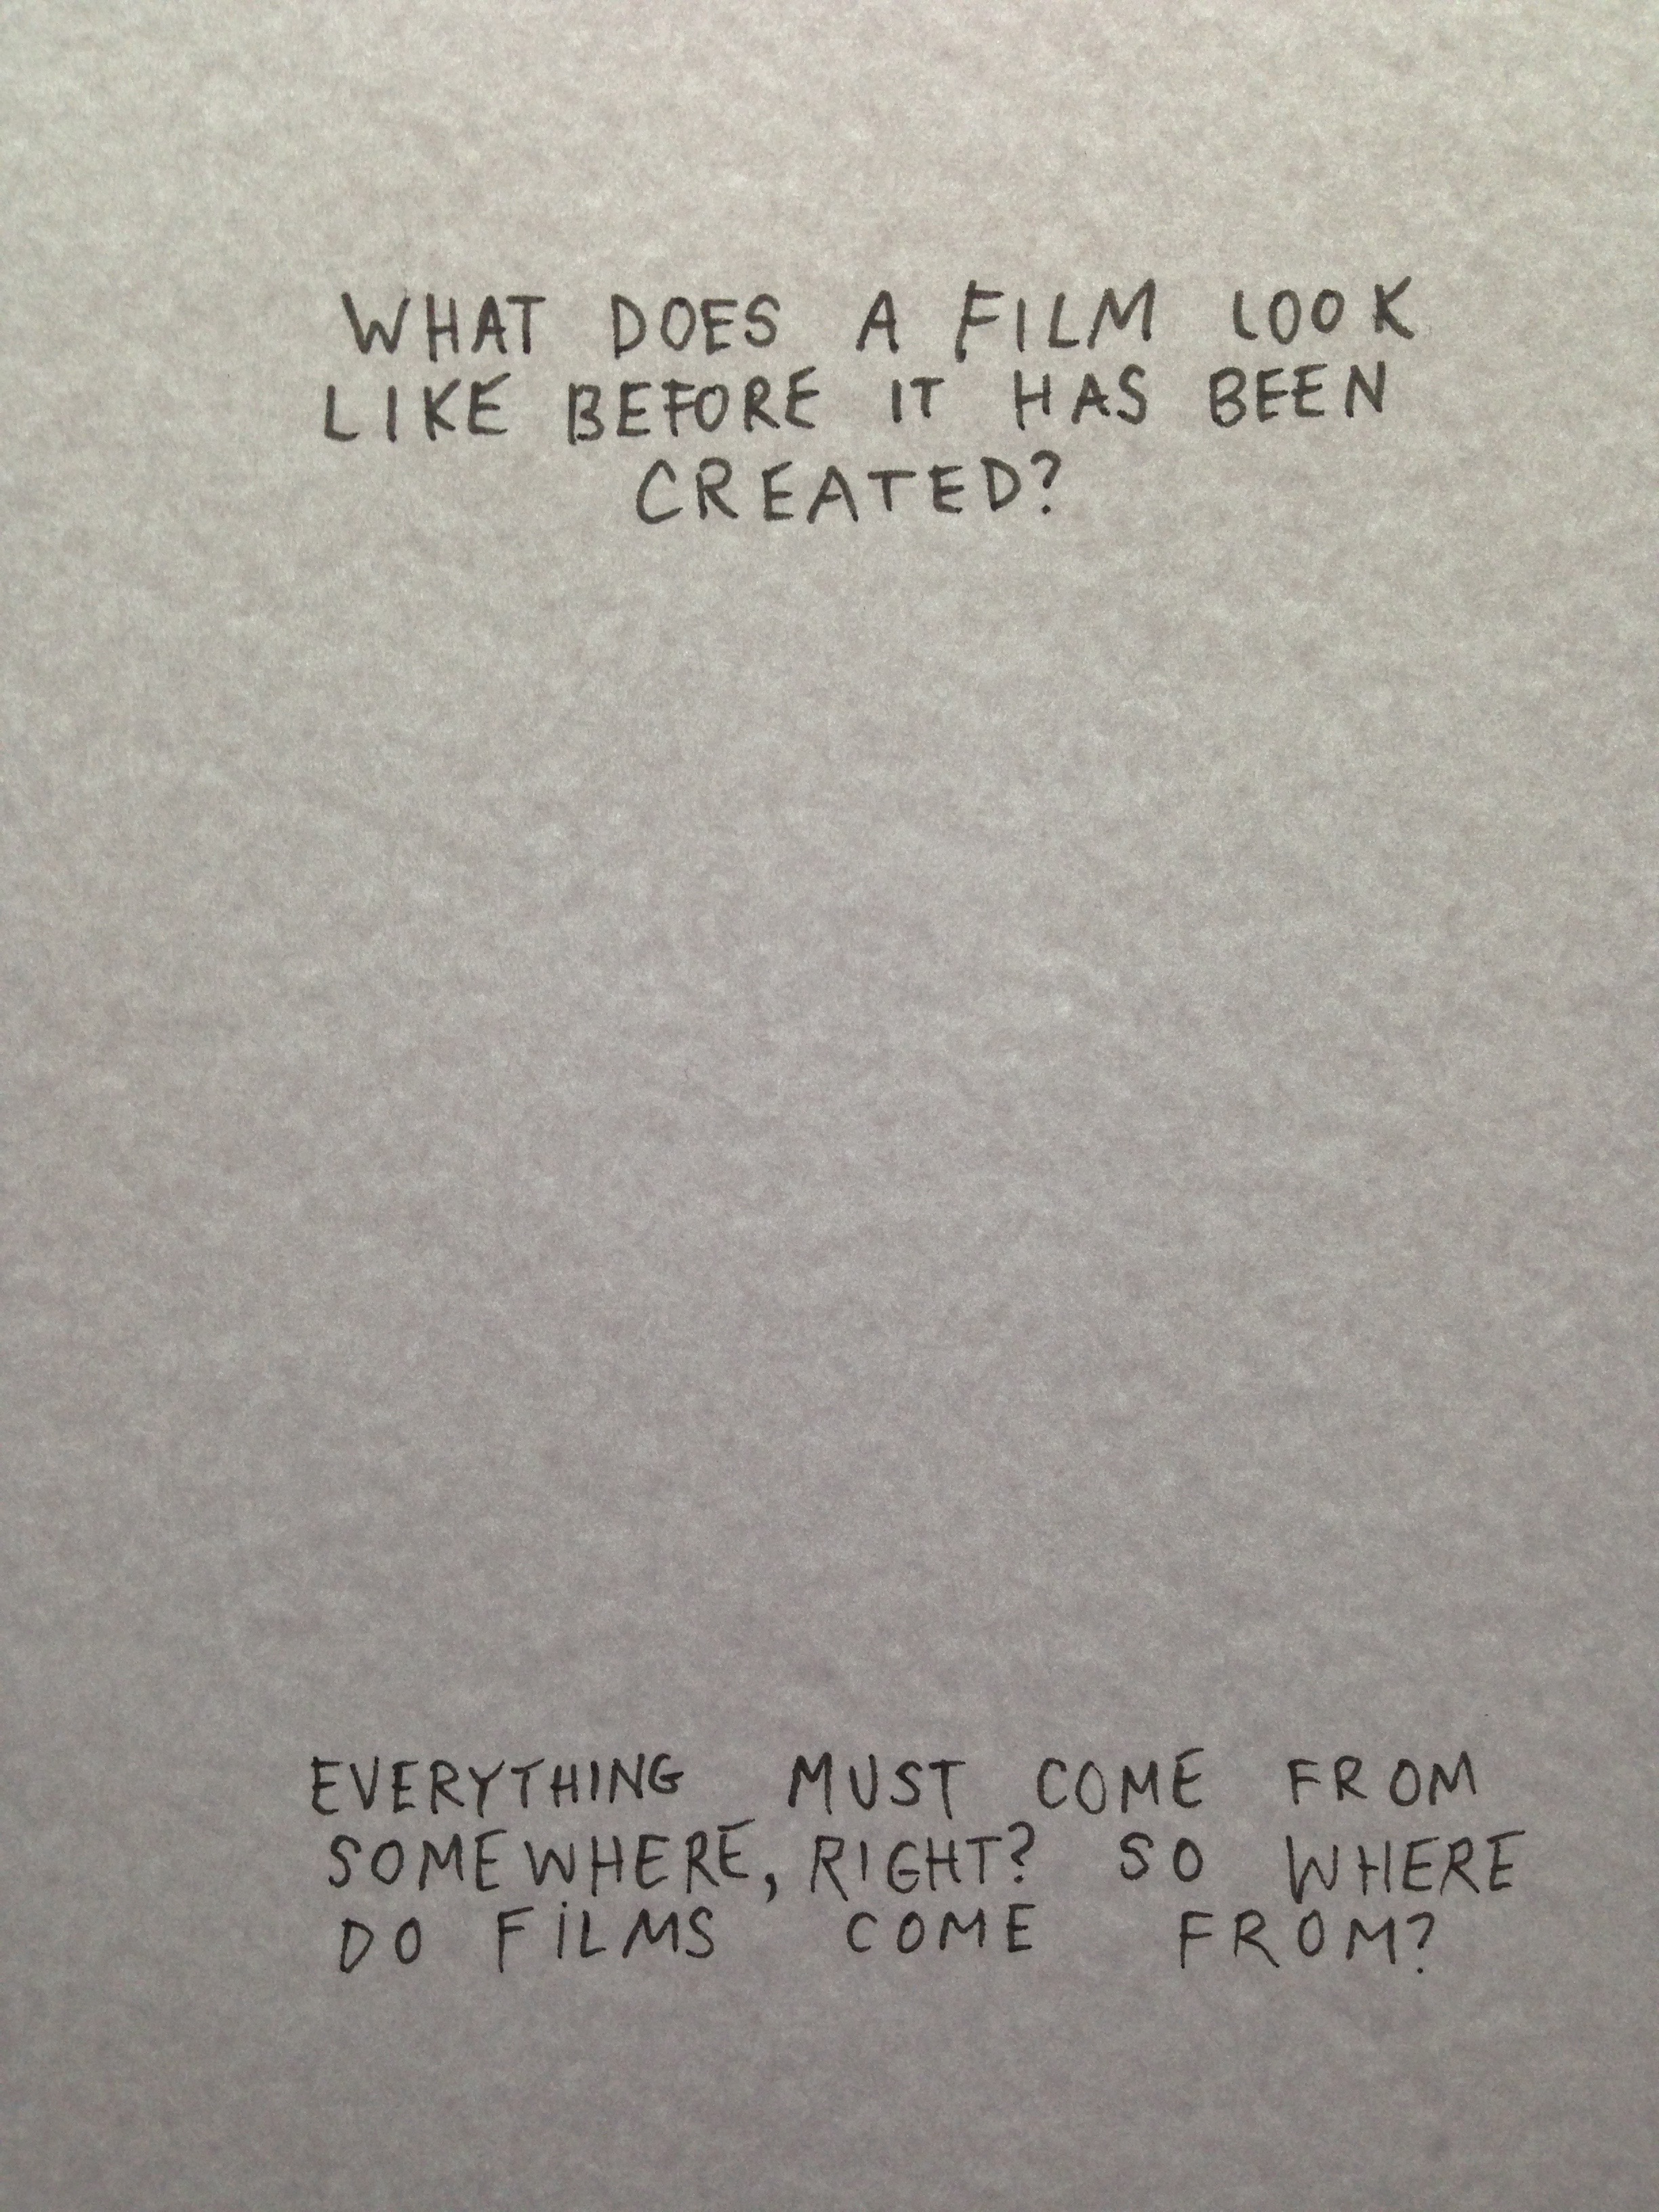 WHAT DOES A FILM LOOK
LIKE BEFORE IT HAS BEEN
CREATED?
EVERYTHING MUST COME FROM
SOMEWHERE, RIGHT? SO WHERE
DO FILMS COME FROM?